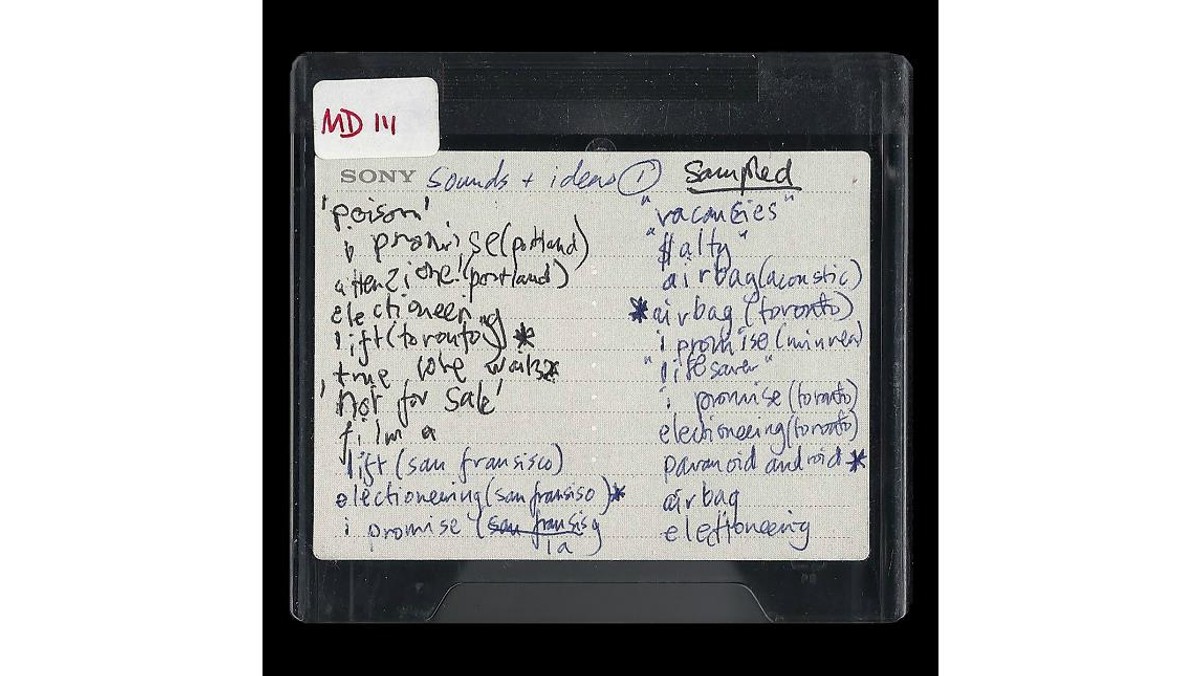 MD 111
SONY sounds + ideas ① sampled
'poison'
i promise (portland)
attenzione! (portland)
electioneering
lift (toronto) *
true love waits *
'not for sale'
film a
lift (san fransisco)
electioneering (san fransiso) *
i promise (san fransisg
la
"vacancies"
"$alty"
airbag (acoustic)
* airbag (toronto)
i promise (
"lifesaver"
i promise (toronto)
electioneering (toronto)
paranoid android *
airbag
electioneering